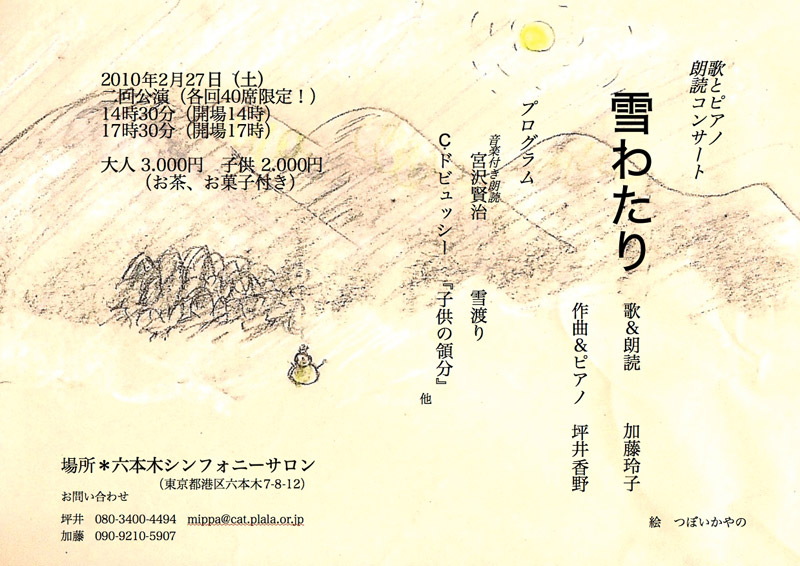 歌とピアノ
朗読コンサート
雪わたり
歌&朗読　加藤玲子
作曲&ピアノ　坪井香野
プログラム
音楽付き朗読
宮沢賢治　雪渡り
C.ドビュッシー　『子供の領分』
他
2010年2月27日（土）
二回公演（各回40席限定！）
14時30分（開場14時）
17時30分（開場17時）
大人 3.000円　子供 2.000円
（お茶、お菓子付き）
場所＊六本木シンフォニーサロン
（東京都港区六本木7-8-12）
お問い合わせ
坪井　080-3400-4494　mippa@cat.plala.or.jp
加藤　090-9210-5907
絵　つぼいかやの